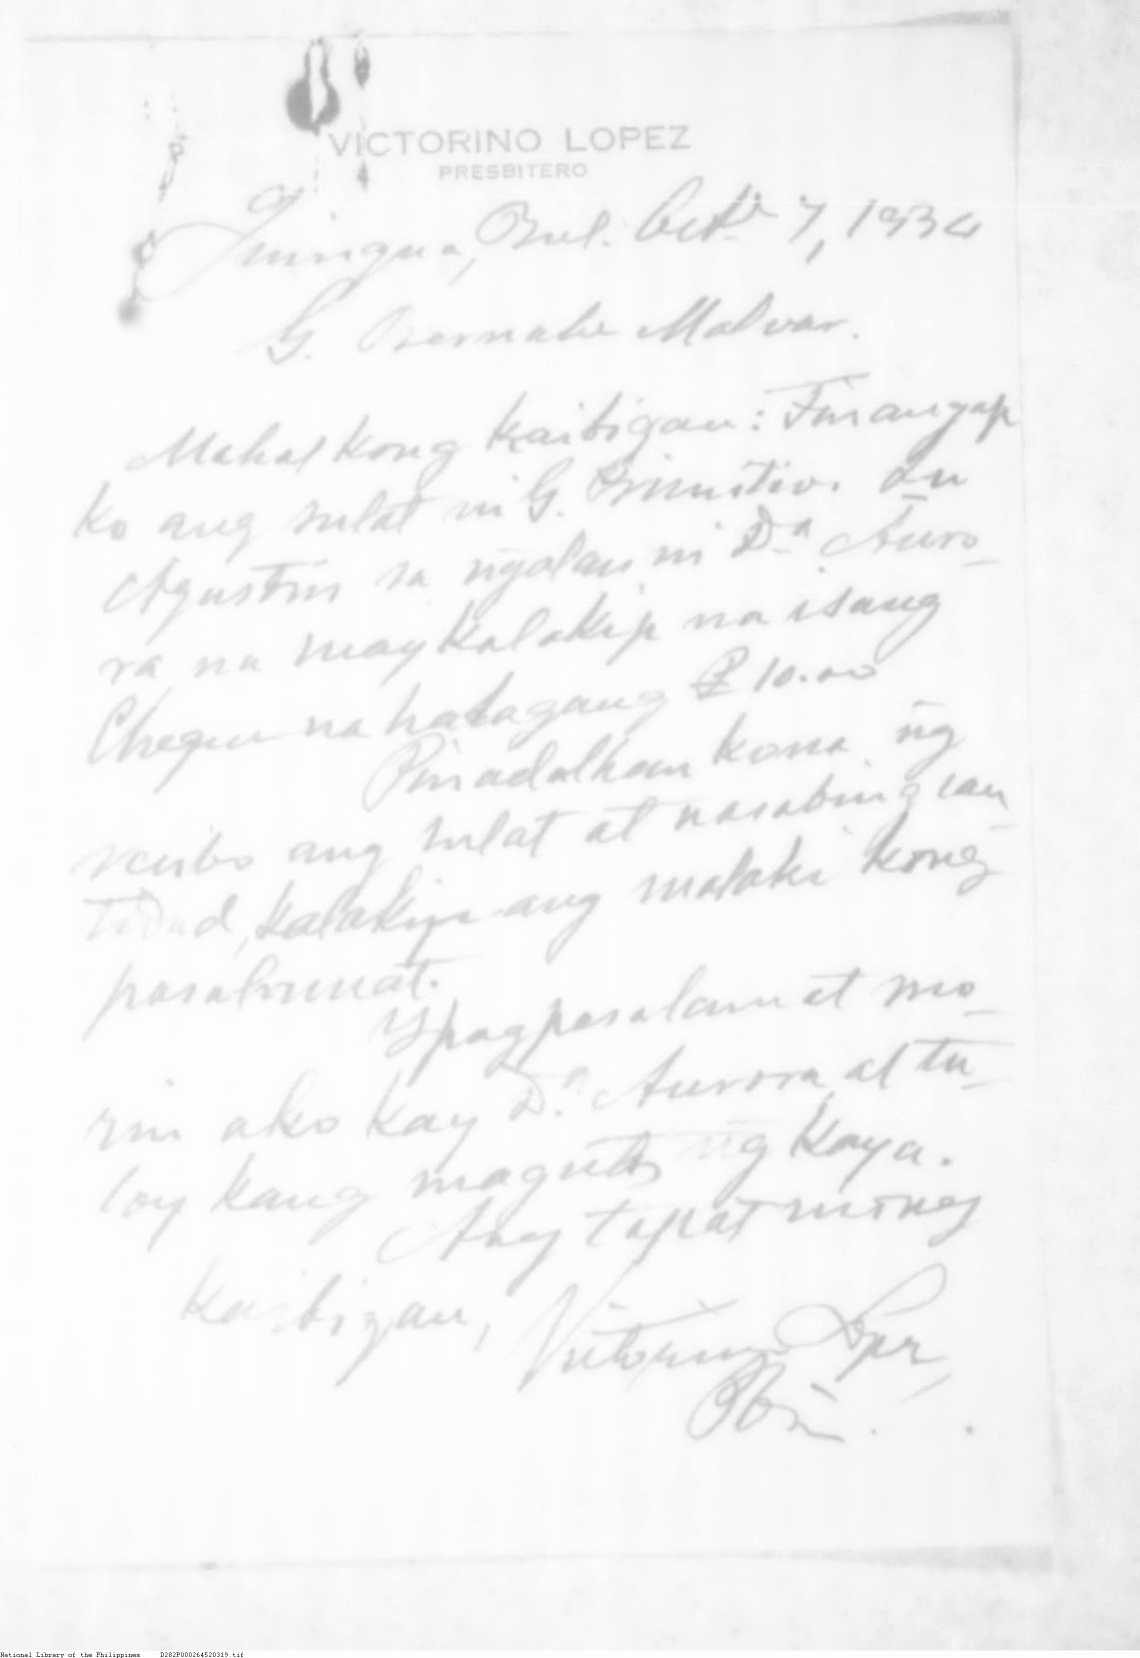 VICTORINO LOPEZ
PRESBITERO
Quingua, Bul. Oct. 7, 1934
G. Bernabe Malvar.
Mahal kong kaibigan: Tinangap
ko ang sulat ni G. Primitivo
Agustin sa ngalan ni D.ª Auro-
ra na may kalakip na isang
Cheque na halagang ₱ 10.00
Pinadalhan kona ng̃
recibo ang sulat at nasabing can-
tidad, kalakip ang malaki kong
pasalamat.
Ypagpasalamat mo
rin ako kay D.ª Aurora, at tu-
loy kang magutos ng̃ kaya.
Ang tapat mong
kaibigan,
Victorino Lopez
Pbro.
National Library of the Philippines D282P000264520319.tif